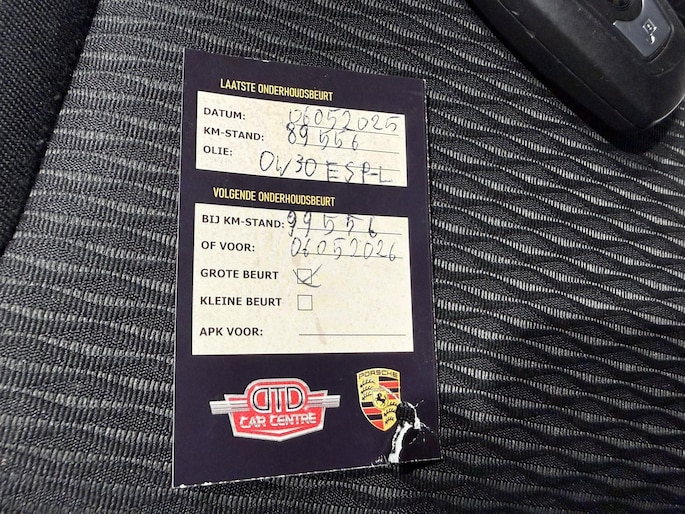 LAATSTE ONDERHOUDSBEURT
DATUM: 06052025
KM-STAND: 89556
OLIE: 0W30 ESP-L
VOLGENDE ONDERHOUDSBEURT
BIJ KM-STAND: 99556
OF VOOR: 06052026
GROTE BEURT
KLEINE BEURT
APK VOOR:
DTD
CAR CENTRE
PORSCHE